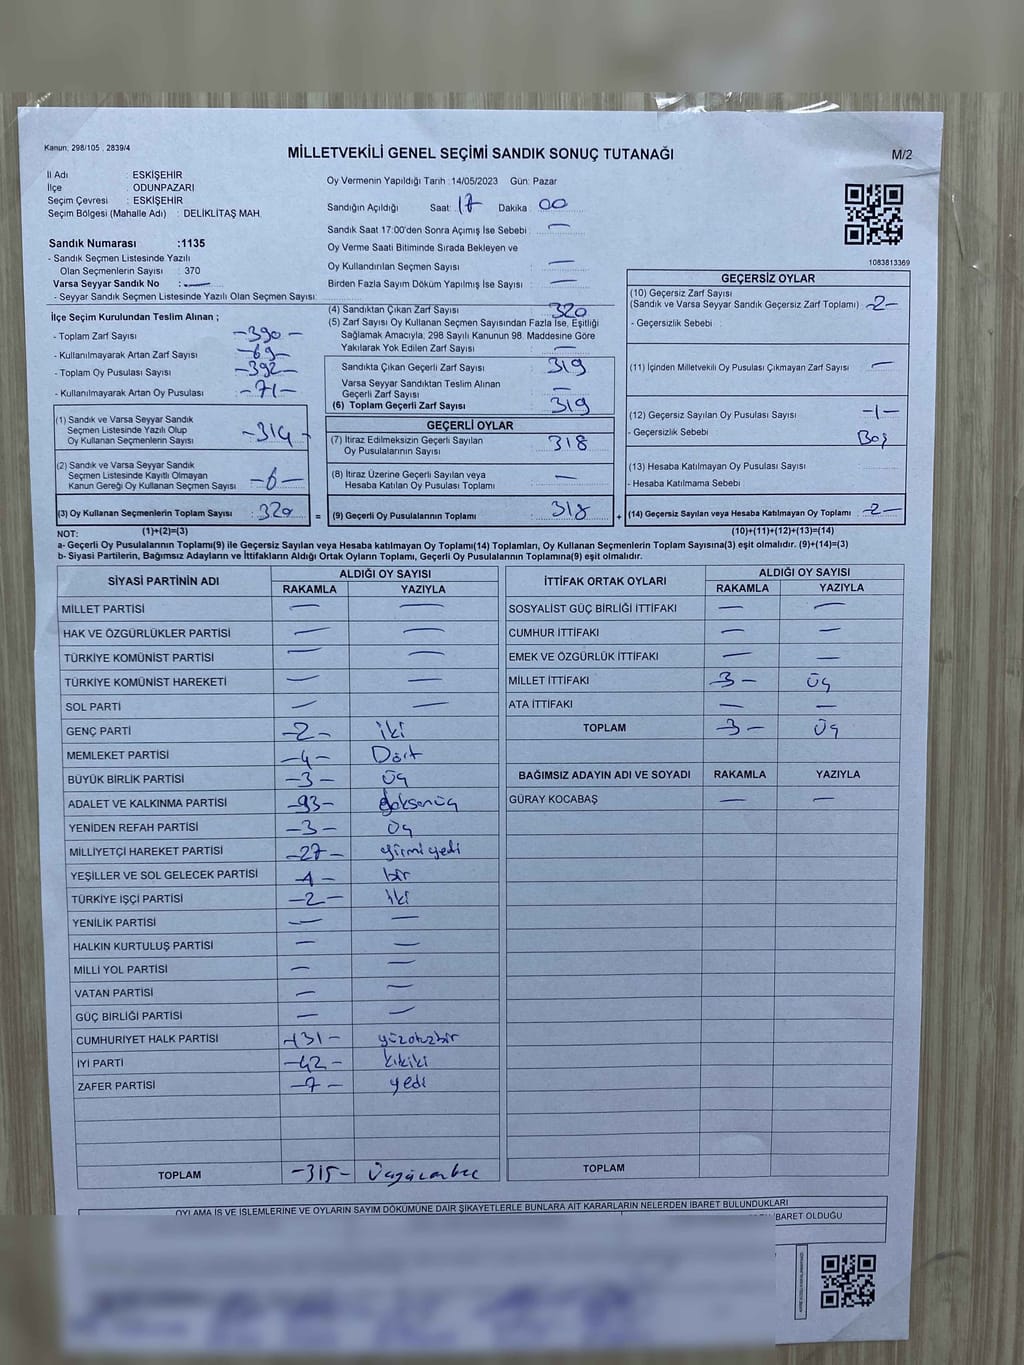 Kanun; 298/105 , 2839/4
MİLLETVEKİLİ GENEL SEÇİMİ SANDIK SONUÇ TUTANAĞI
M/2
İl Adı : ESKİŞEHİR
İlçe : ODUNPAZARI
Seçim Çevresi : ESKİŞEHİR
Seçim Bölgesi (Mahalle Adı) : DELİKLİTAŞ MAH.
Oy Vermenin Yapıldığı Tarih :14/05/2023 Gün: Pazar
Sandığın Açıldığı Saat: 17 Dakika 00
Sandık Saat 17:00'den Sonra Açımış İse Sebebi : —
Oy Verme Saati Bitiminde Sırada Bekleyen ve
Oy Kullandırılan Seçmen Sayısı : —
Birden Fazla Sayım Döküm Yapılmış İse Sayısı : —
1083813369
Sandık Numarası :1135
- Sandık Seçmen Listesinde Yazılı
Olan Seçmenlerin Sayısı : 370
Varsa Seyyar Sandık No : —
- Seyyar Sandık Seçmen Listesinde Yazılı Olan Seçmen Sayısı:
İlçe Seçim Kurulundan Teslim Alınan ;
- Toplam Zarf Sayısı : -390-
- Kullanılmayarak Artan Zarf Sayısı : -69-
- Toplam Oy Pusulası Sayısı : -392-
- Kullanılmayarak Artan Oy Pusulası : -71-
(1) Sandık ve Varsa Seyyar Sandık
Seçmen Listesinde Yazılı Olup
Oy Kullanan Seçmenlerin Sayısı : -314-
(2) Sandık ve Varsa Seyyar Sandık
Seçmen Listesinde Kayıtlı Olmayan
Kanun Gereği Oy Kullanan Seçmen Sayısı : -6-
(3) Oy Kullanan Seçmenlerin Toplam Sayısı : 320
(1)+(2)=(3)
(4) Sandıktan Çıkan Zarf Sayısı : 320
(5) Zarf Sayısı Oy Kullanan Seçmen Sayısından Fazla İse, Eşitliği
Sağlamak Amacıyla, 298 Sayılı Kanunun 98. Maddesine Göre
Yakılarak Yok Edilen Zarf Sayısı : —
Sandıkta Çıkan Geçerli Zarf Sayısı : 319
Varsa Seyyar Sandıktan Teslim Alınan
Geçerli Zarf Sayısı : —
(6) Toplam Geçerli Zarf Sayısı : 319
GEÇERLİ OYLAR
(7) İtiraz Edilmeksizin Geçerli Sayılan
Oy Pusulalarının Sayısı : 318
(8) İtiraz Üzerine Geçerli Sayılan veya
Hesaba Katılan Oy Pusulası Toplamı : —
= (9) Geçerli Oy Pusulalarının Toplamı : 318
GEÇERSİZ OYLAR
(10) Geçersiz Zarf Sayısı
(Sandık ve Varsa Seyyar Sandık Geçersiz Zarf Toplamı) : -2-
- Geçersizlik Sebebi :
(11) İçinden Milletvekili Oy Pusulası Çıkmayan Zarf Sayısı : —
(12) Geçersiz Sayılan Oy Pusulası Sayısı : -1-
- Geçersizlik Sebebi : Boş
(13) Hesaba Katılmayan Oy Pusulası Sayısı :
- Hesaba Katılmama Sebebi :
+ (14) Geçersiz Sayılan veya Hesaba Katılmayan Oy Toplamı : -2-
(10)+(11)+(12)+(13)=(14)
NOT:
a- Geçerli Oy Pusulalarının Toplamı(9) ile Geçersiz Sayılan veya Hesaba katılmayan Oy Toplamı(14) Toplamları, Oy Kullanan Seçmenlerin Toplam Sayısına(3) eşit olmalıdır. (9)+(14)=(3)
b- Siyasi Partilerin, Bağımsız Adayların ve İttifakların Aldığı Ortak Oyların Toplamı, Geçerli Oy Pusulalarının Toplamına(9) eşit olmalıdır.
SİYASİ PARTİNİN ADI ALDIĞI OY SAYISI
RAKAMLA YAZIYLA
MİLLET PARTİSİ — —
HAK VE ÖZGÜRLÜKLER PARTİSİ — —
TÜRKİYE KOMÜNİST PARTİSİ — —
TÜRKİYE KOMÜNİST HAREKETİ — —
SOL PARTİ — —
GENÇ PARTİ -2- iki
MEMLEKET PARTİSİ -4- Dört
BÜYÜK BİRLİK PARTİSİ -3- üç
ADALET VE KALKINMA PARTİSİ -93- doksanüç
YENİDEN REFAH PARTİSİ -3- üç
MİLLİYETÇİ HAREKET PARTİSİ -27- yirmiyedi
YEŞİLLER VE SOL GELECEK PARTİSİ -1- bir
TÜRKİYE İŞÇİ PARTİSİ -2- iki
YENİLİK PARTİSİ — —
HALKIN KURTULUŞ PARTİSİ — —
MİLLİ YOL PARTİSİ — —
VATAN PARTİSİ — —
GÜÇ BİRLİĞİ PARTİSİ — —
CUMHURİYET HALK PARTİSİ -131- yüzotuzbir
İYİ PARTİ -42- kıkiki
ZAFER PARTİSİ -7- yedi
TOPLAM -315-
İTTİFAK ORTAK OYLARI ALDIĞI OY SAYISI
RAKAMLA YAZIYLA
SOSYALİST GÜÇ BİRLİĞİ İTTİFAKI — —
CUMHUR İTTİFAKI — —
EMEK VE ÖZGÜRLÜK İTTİFAKI — —
MİLLET İTTİFAKI -3- üç
ATA İTTİFAKI — —
TOPLAM -3- üç
BAĞIMSIZ ADAYIN ADI VE SOYADI RAKAMLA YAZIYLA
GÜRAY KOCABAŞ — —
TOPLAM
OYLAMA İŞ VE İŞLEMLERİNE VE OYLARIN SAYIM DÖKÜMÜNE DAİR ŞİKAYETLERLE BUNLARA AİT KARARLARIN NELERDEN İBARET BULUNDUKLARI
İBARET OLDUĞU